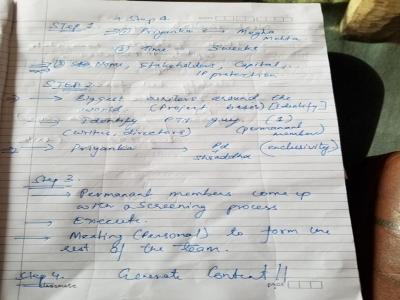 Step 1
(1) Priyanka → Megha Mehta
(2) Time 3 weeks
(3) Name, Stakeholders, Capital, ..
IP protection
STEP 2.
→ Biggest writers around the
world. (Project based) [Identify]
→ Identify FTII guy. (1)
(writers, directors) (permanent member)
→ Priyanka → Pd Shraddha (exclusivity)
Step 3.
→ Permanant members come up
with a screening process
→ Execute.
→ Meeting (Personal) to form the
rest of the team.
Step 4. Generate Content!!